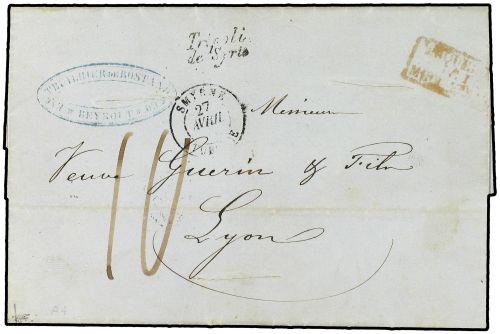 Tripoli
de Syrie
BEYROUT
SMYRNE
27
AVRIL
Messieurs
Veuve Guerin & Fils
10
Lyon